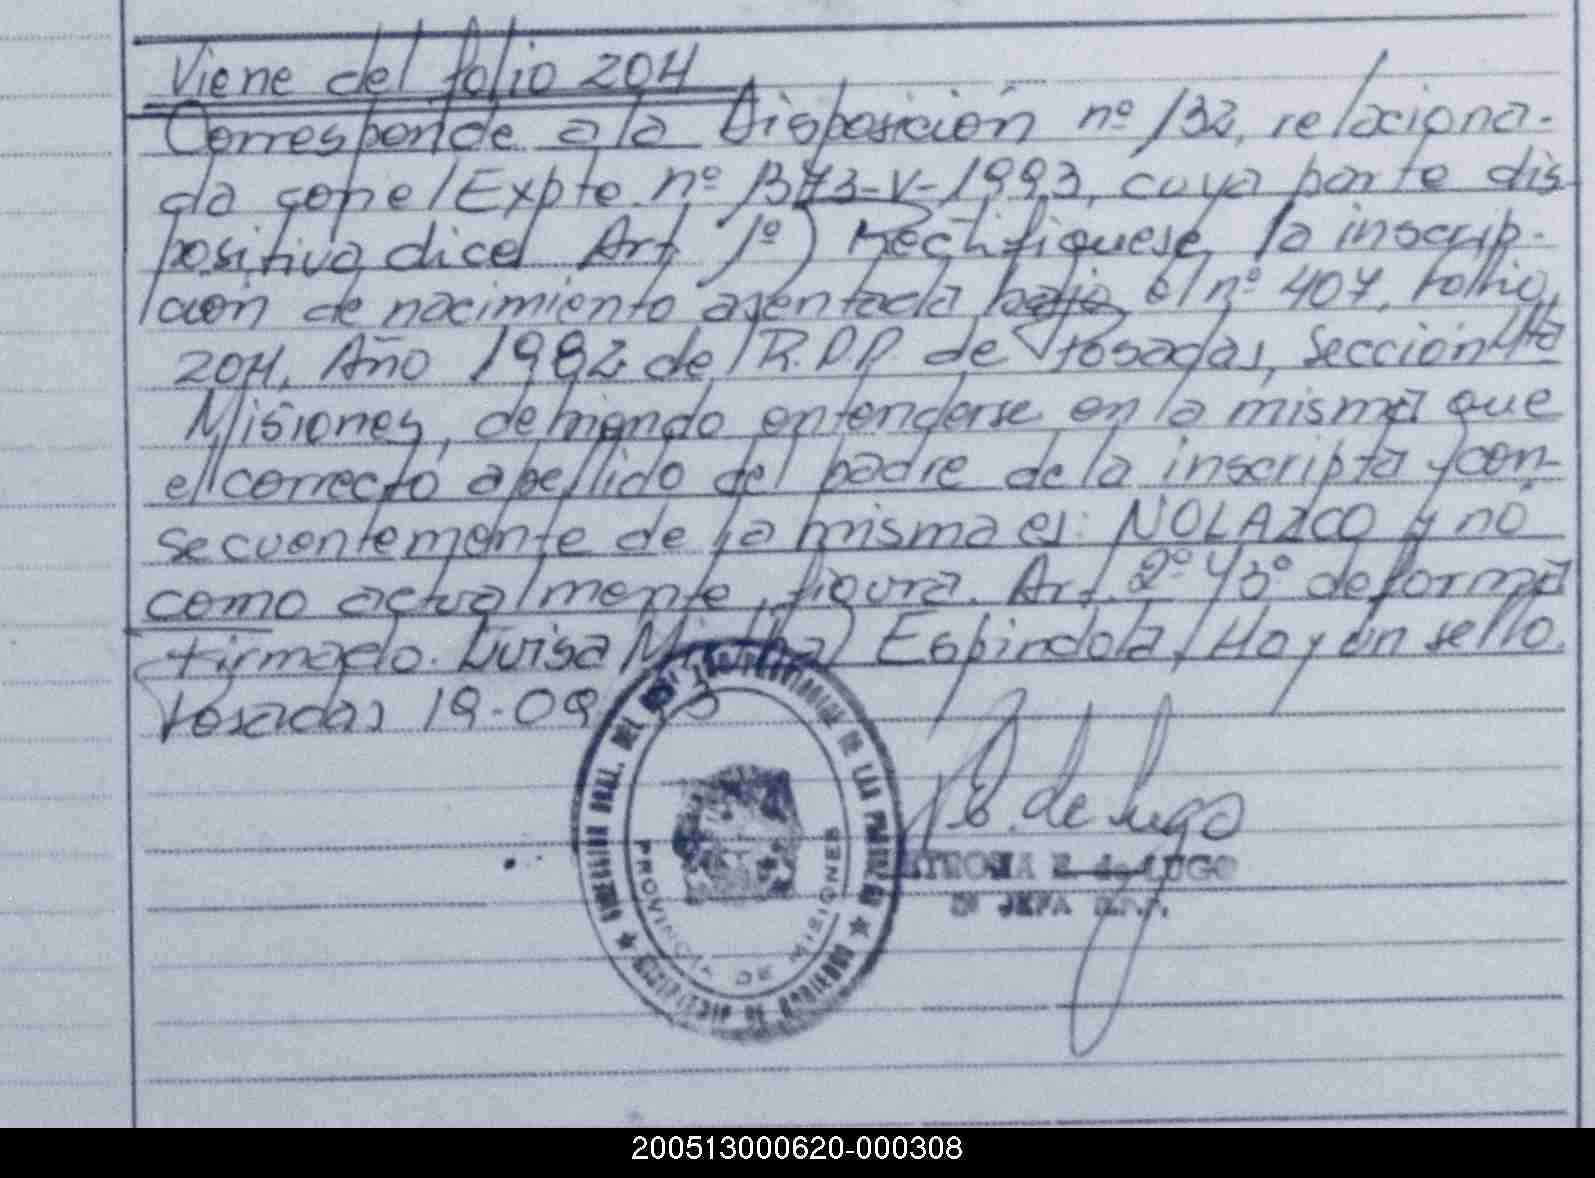 Viene del folio 204
Corresponde a la Disposición nº 132, relaciona-
da con el Expte. nº 1373-V-1993, cuya parte dis
positiva dice: Art. 1º) Rectifíquese la inscrip-
ción de nacimiento asentada bajo el nº 407, Folio
204, Año 1982 de R.P.P de Posadas, Sección 4ta
Misiones, debiendo entenderse en la misma que
el correcto apellido del padre de la inscripta y con-
secuentemente de la misma es: NOLAZCO y nó
como actualmente figura. Art. 2º y 3º de forma
Firmado. Luisa Espíndola, Hay un sello.
Posadas 19-09
DEL
PROVINCIAL DE LAS PERSONAS
PROVINCIA DE MISIONES
MINISTERIO DE GOBIERNO
B. de Lugo
B. de LUGO
JEFA R.P.P.
200513000620-000308